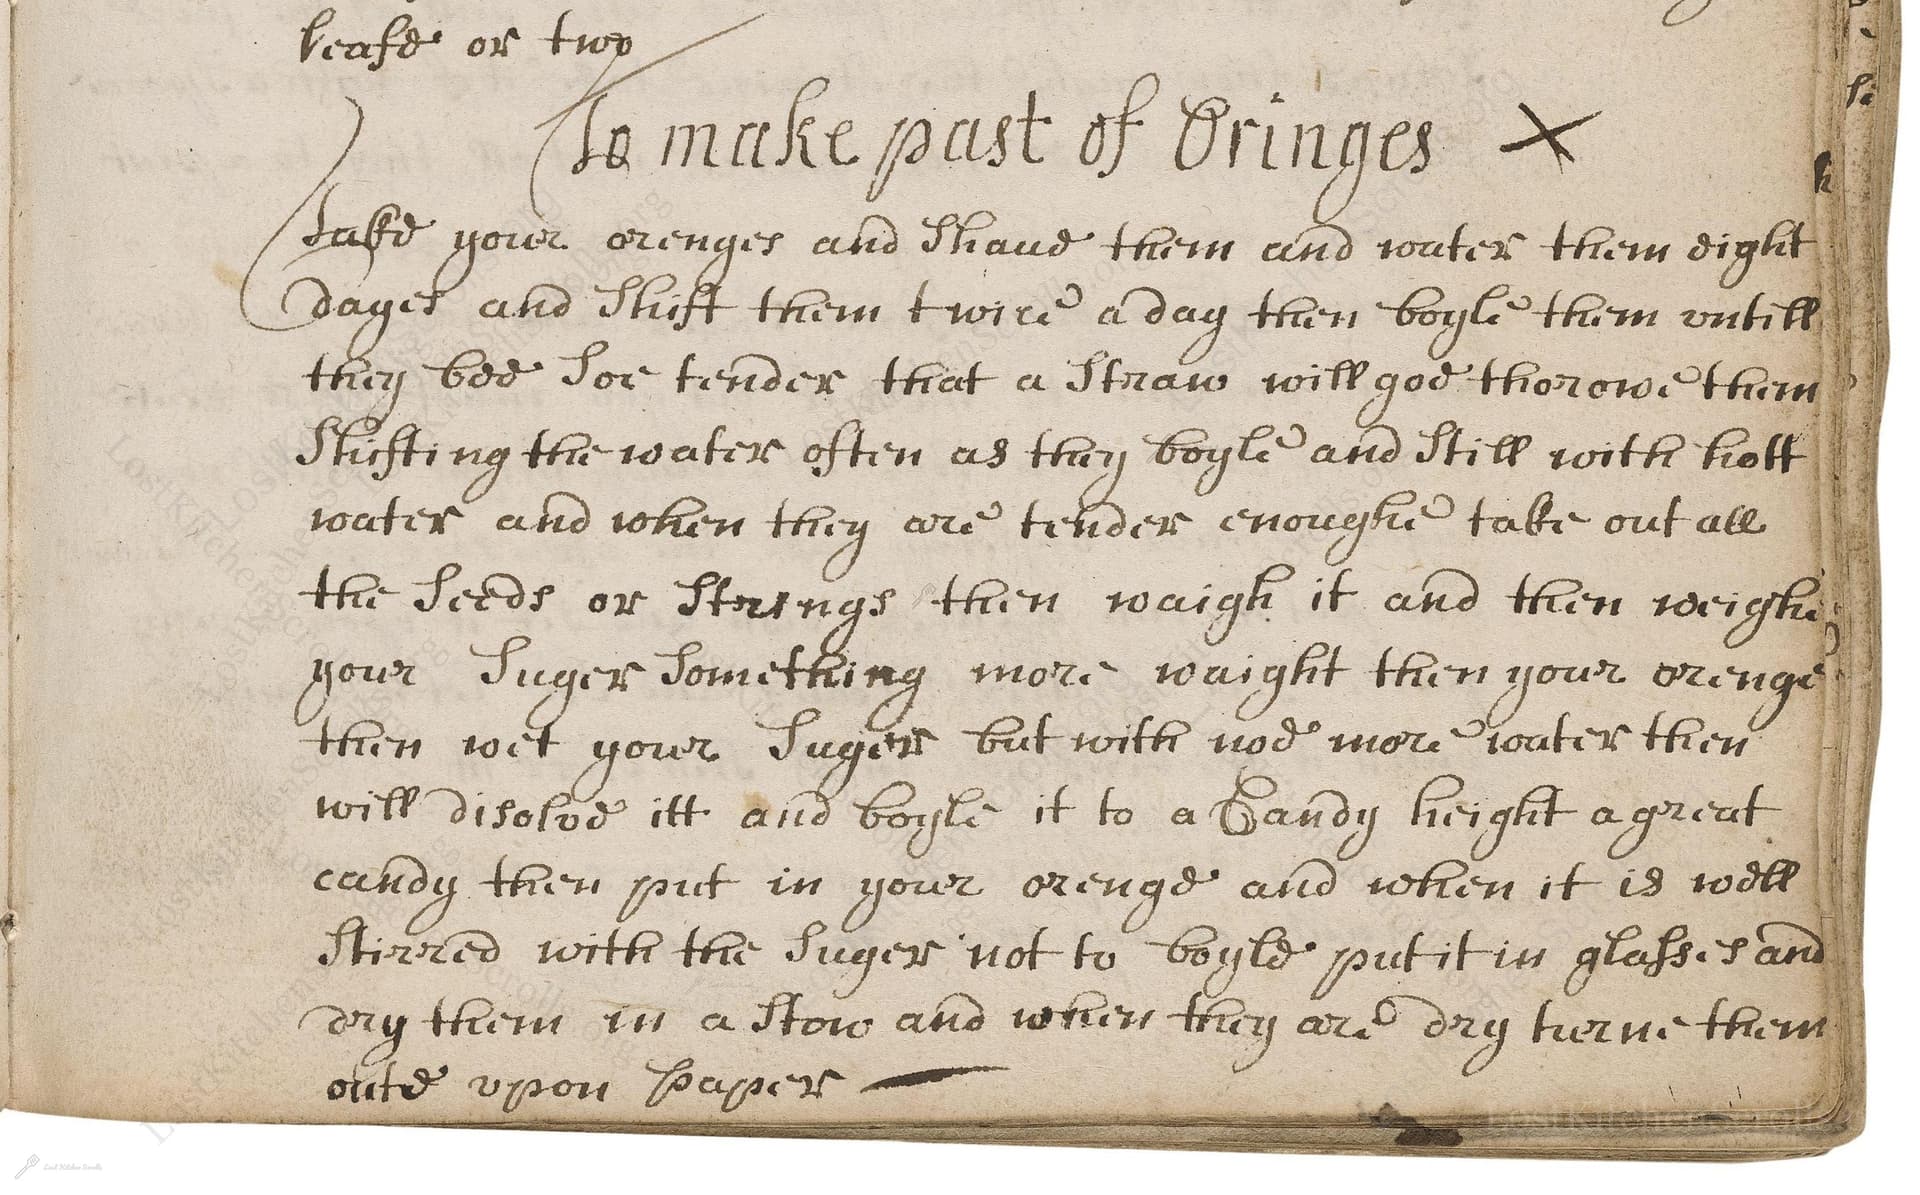 leafe or two
To make past of Oringes
Take your orenges and Shaue them and water them eight
dayes and Shift them twice a day then boyle them vntill
they bee Soe tender that a Straw will goe thorowe them
Shifting the water often as they boyle and Still with hott
water and when they are tender enoughe take out all
the Seeds or Strings then waigh it and then weighe
your Suger Something more waight then your orenge
then wet your Suger but with noe more water then
will disolve itt and boyle it to a Candy height a great
candy then put in your orenge and when it is well
Stirred with the Suger not to boyle put it in glasses and
dry them in a Stow and when they are dry turne them
oute vpon paper